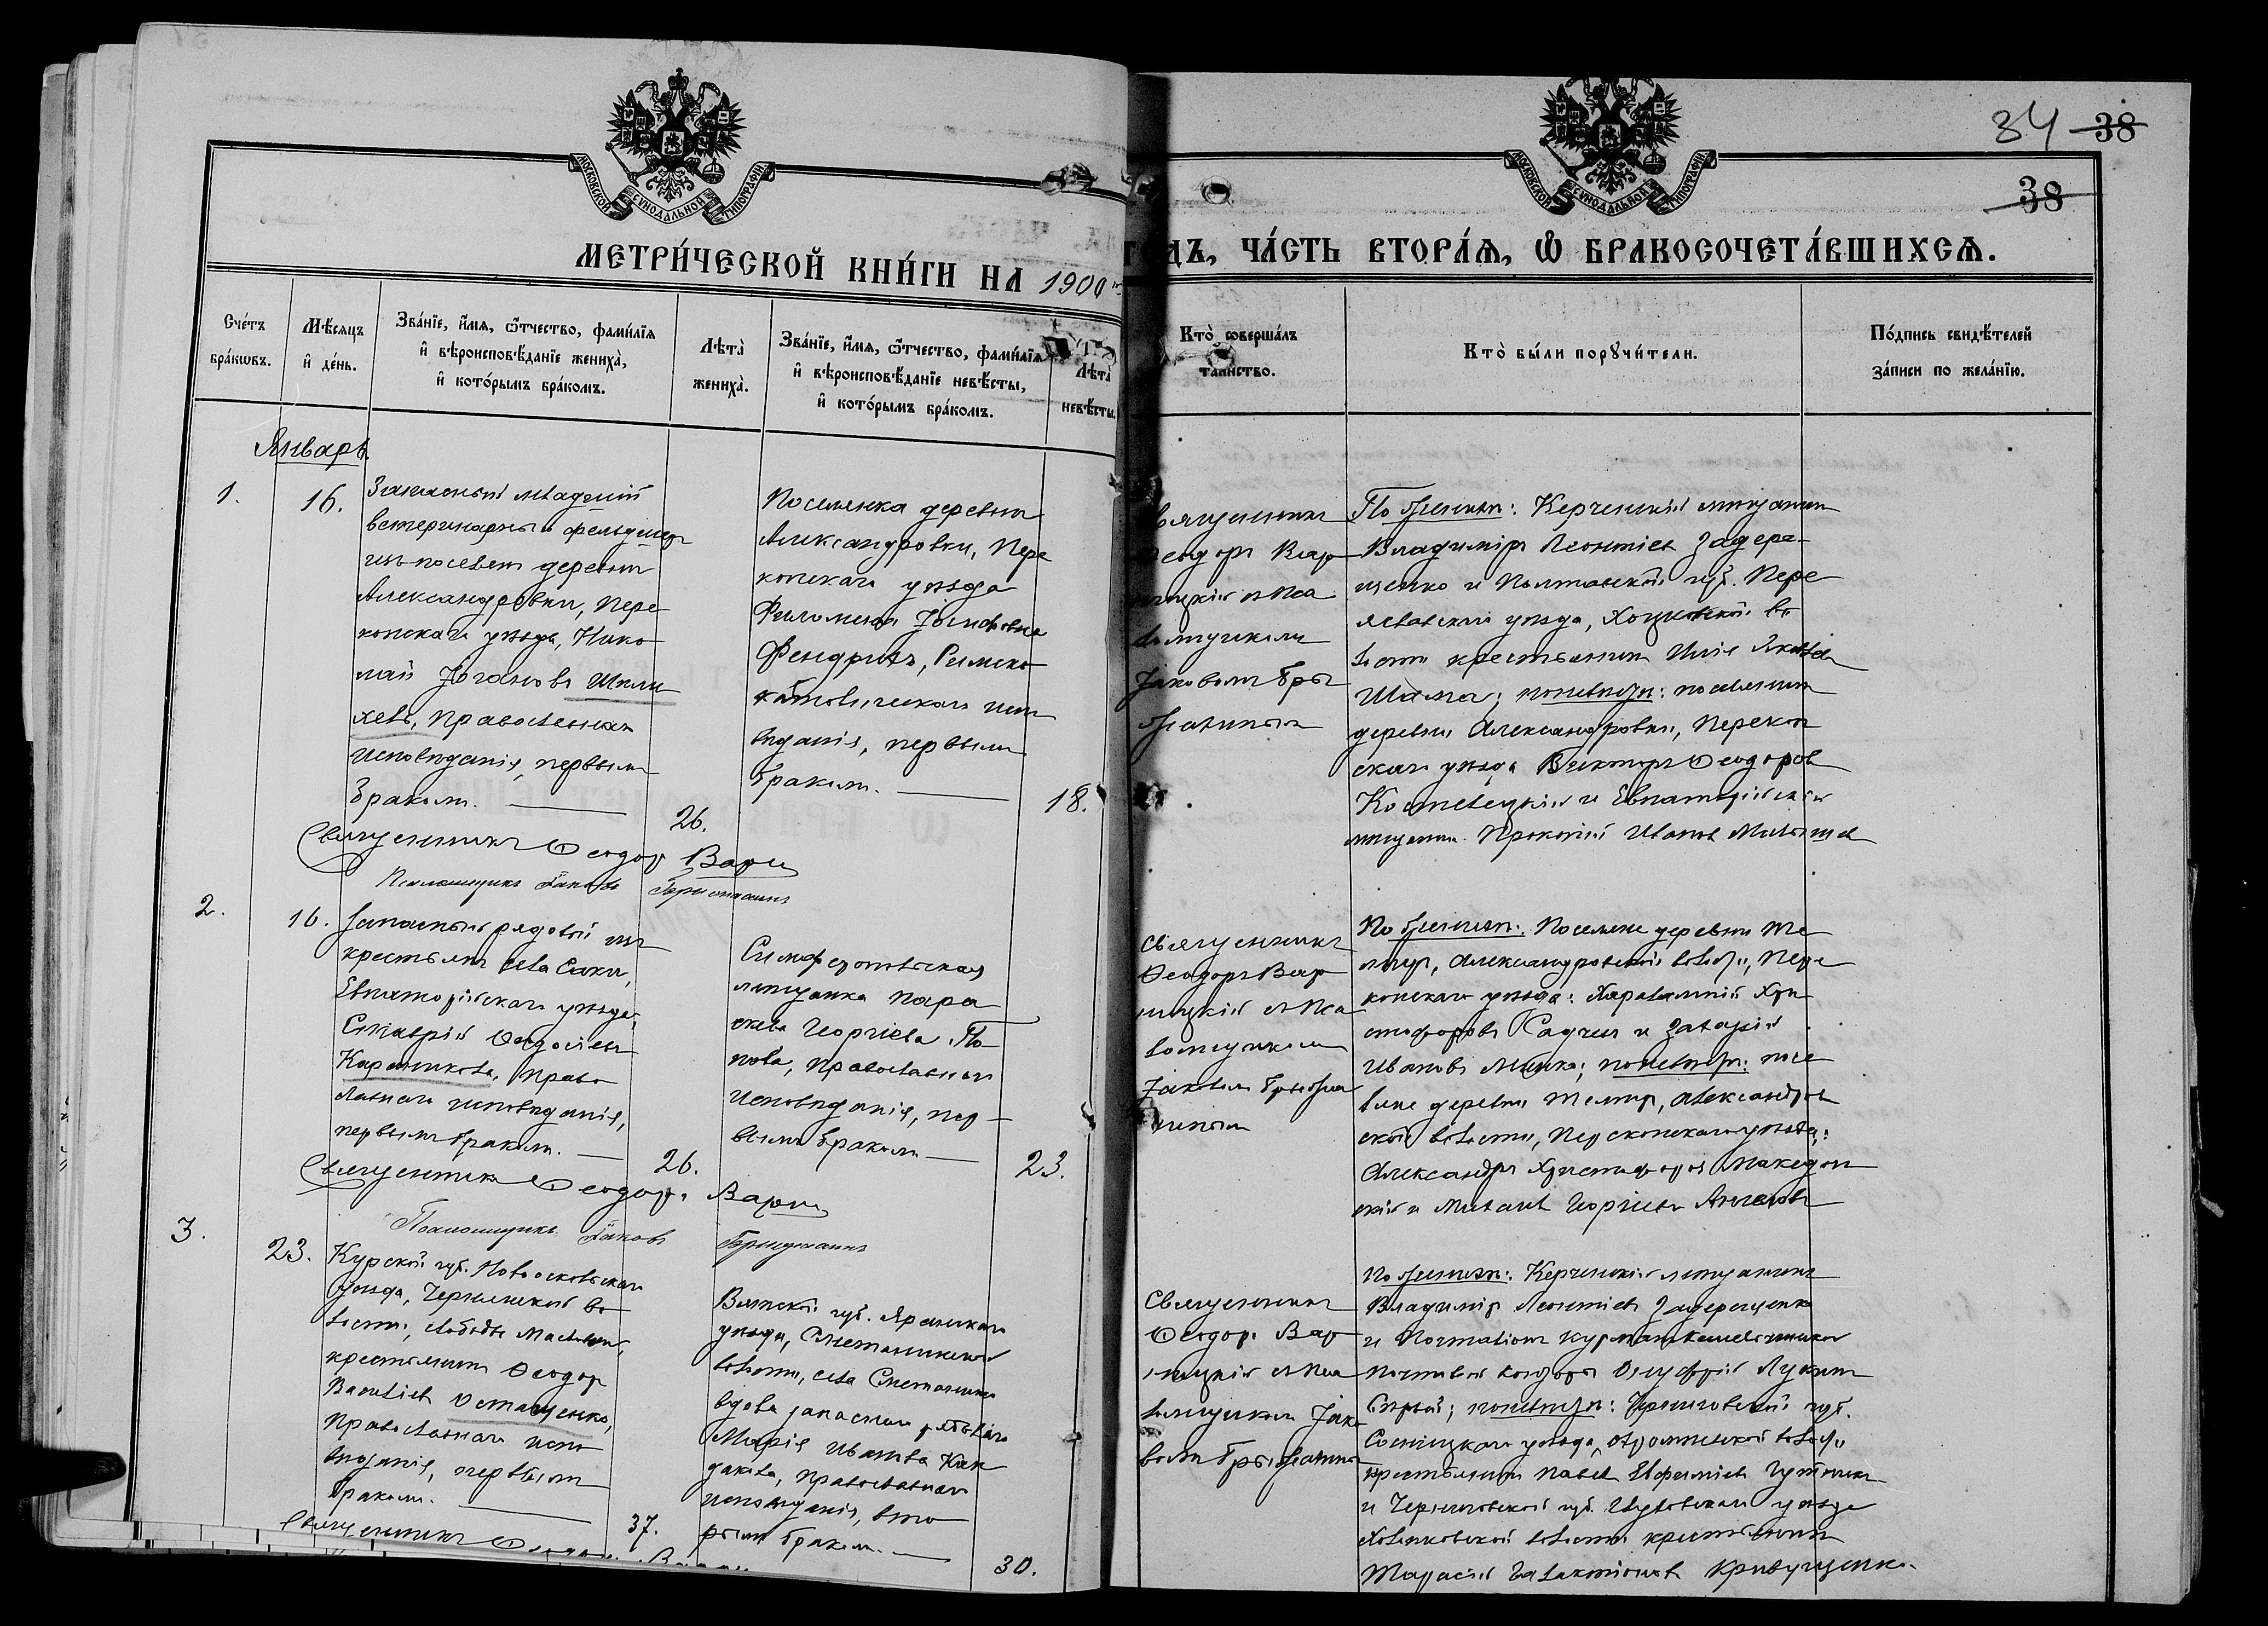 34 38
38
МОСКОВСКОЙ СѴНОДАЛЬНОЙ ТИПОГРАФІИ
МОСКОВСКОЙ СѴНОДАЛЬНОЙ ТИПОГРАФІИ
МЕТРИ́ЧЕСКОЙ КНИ́ГИ НА 1900
ГОДЪ, ЧА́СТЬ ВТОРА́Ѧ, Ѽ БРАКОСОЧЕТА́ВШИХСѦ.
Сче́тъ
бра́кѡвъ.
Мѣ́сѧцъ
и҆ де́нь.
Зва́нїе, и҆́мѧ, ѻ҆́тчество, фами́лїѧ
и҆ вѣроисповѣ́данїе жениха̀,
и҆ кото́рымъ бра́комъ.
Лѣта̀
жениха̀.
Зва́нїе, и҆́мѧ, ѻ҆́тчество, фами́лїѧ
и҆ вѣроисповѣ́данїе невѣ́сты,
и҆ кото́рымъ бра́комъ.
Лѣта̀
невѣ́сты.
Кто̀ соверша́лъ
та́инство.
Кто̀ бы́ли порꙋчи́тели.
По́дпись свидѣ́телей
за́писи по жела́нїю.
Январь.
1.
16.
Запасный младшій
ветеринарный фельдшер
изъ поселян деревни
Александровки, Пере
копскаго уѣзда, Нико
лай Іогановъ Шмли
хевъ, православнаго
исповѣданія, первымъ
бракомъ.
26.
Поселянка деревни
Александровки, Пере
копскаго уѣзда
Филомена Іосифовна
Фендрихъ, Римско
католическаго испо
вѣданія, первымъ
бракомъ.
18.
Священникъ
Ѳеодоръ Вар
ницкій с пса
ломщикомъ
Іаковомъ Бры
жатымъ
По женихѣ: Керченскій мѣщанин
Владиміръ Леонтіевъ Задере-
щенко и Полтавской губ. Пере
яславскаго уѣзда, Хоцковской во
лости крестьянинъ Илія Яковлев
Шама; по невѣстѣ: поселянин
деревни Александровки, Перекоп
скаго уѣзда Викторъ Ѳеодоров
Костецкій и Евпаторійскій
мѣщанин Прокопій Иванов
Священникъ Ѳеодор Варн
Псаломщикъ Іаковъ
2.
16.
Запасный рядовой изъ
крестьянъ села Саки,
Евпаторійскаго уѣзда,
Ставрій Ѳеодосіевъ
Карашкова, право
славнаго исповѣданія,
первымъ бракомъ.
26.
Симферопольская
мѣщанка Пара
скева Георгіева По
пова, православнаго
исповѣданія, пер-
вымъ бракомъ
23.
Священникъ
Ѳеодоръ Вар
ницкій с пса
ломщикомъ
Іаковомъ
По женихѣ: Поселяне деревни Те
миръ, Александровской волости, Пере
копскаго уѣзда: Харалампій Хри
стофоровъ Садчев и Захарій
Иванов; по невѣстѣ: посе
ляне деревни Темиръ, Александров
ской волости, Перекопскаго уѣзда:
Александръ Христофоров Македон
скій и Михаилъ Георгіевъ Ангеловъ
Священник Ѳеодоръ Варн
Псаломщикъ Іаковъ
3.
23.
Курской губ. Новооскольскаго
уѣзда, Чернянской во
лости, слободы
крестьянинъ Ѳеодоръ
Васильев Остащенко,
православнаго испо
вѣданія, первымъ
бракомъ.
37.
Вятской губ. Яранскаго
уѣзда, Сметанинской
волости, села Сметанина
вдова запаснаго рядового
Марія Иванова Кан
дакова, православнаго
исповѣданія, вто
рымъ бракомъ.
30.
Священникъ
Ѳеодоръ Вар
ницкій с пса
ломщиком Іако
вомъ
По женихѣ: Керченскій мѣщанинъ
Владиміръ Леонтіевъ Задерещенко
и
почтовой конторы Онуфрій Лукин
Сѣрый; по невѣстѣ: Черниговской губ.
Сосницкаго уѣзда, волости
крестьянинъ Павелъ Евфиміевъ
и Черниговской губ. Глуховскаго уѣзда
волости крестьянинъ
Тарасій Галактіонов Кривущенко.
Священникъ Ѳеодоръ